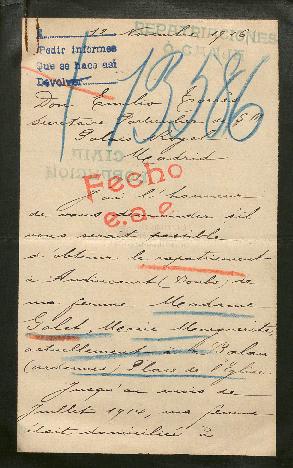 REPATRIACIONES
12 1916
Pedir informes
Que se haga así
Devolver
13586
Don Emilio Torrès
Secrétaire Particulier de S M
Palais Royal
Madrid
Fecho
e.a.e
J'ai l'honneur
de vous demander s'il
vous serait possible
d'obtenir le rapatriement
à Audincourt (Doubs) de
ma femme Madame
Galet, Marie Marguerite,
actuellement à
(Ardennes) Place de l'Eglise.
Jusqu'au mois de
Juillet 1914, ma femme
était domiciliée à